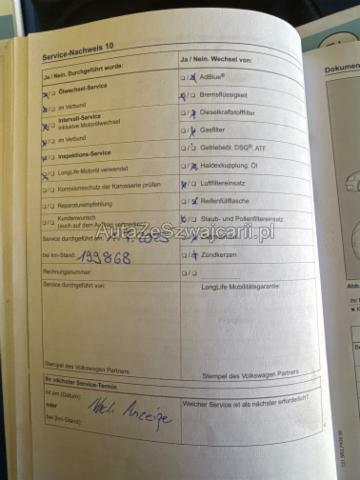 Service-Nachweis 10
Ja / Nein. Durchgeführt wurde:
Ölwechsel-Service
im Verbund
Intervall-Service
inklusive Motorölwechsel
im Verbund
Inspektions-Service
LongLife Motoröl verwendet
Korrosionsschutz der Karosserie prüfen
Reparaturempfehlung
Kundenwunsch
(auch auf dem Auftrag vermerken)
Service durchgeführt am:
bei km-Stand: 199868
Rechnungsnummer:
Service durchgeführt von:
Stempel des Volkswagen Partners
Ja / Nein. Wechsel von:
AdBlue®
Bremsflüssigkeit
Dieselkraftstofffilter
Gasfilter
Getriebeöl: DSQ®, ATF
Haldexkupplung: Öl
Luftfiltereinsatz
Reifenfüllflasche
Staub- und Pollenfiltereinsatz
Zündkerzen
LongLife Mobilitätsgarantie:
Stempel des Volkswagen Partners
Ihr nächster Service-Termin
ist am (Datum)
oder
bei (km-Stand):
Nach Anzeige
Welcher Service ist als nächster erforderlich?
AutaZeSzwajcarii.pl
Dokumen
Abb.